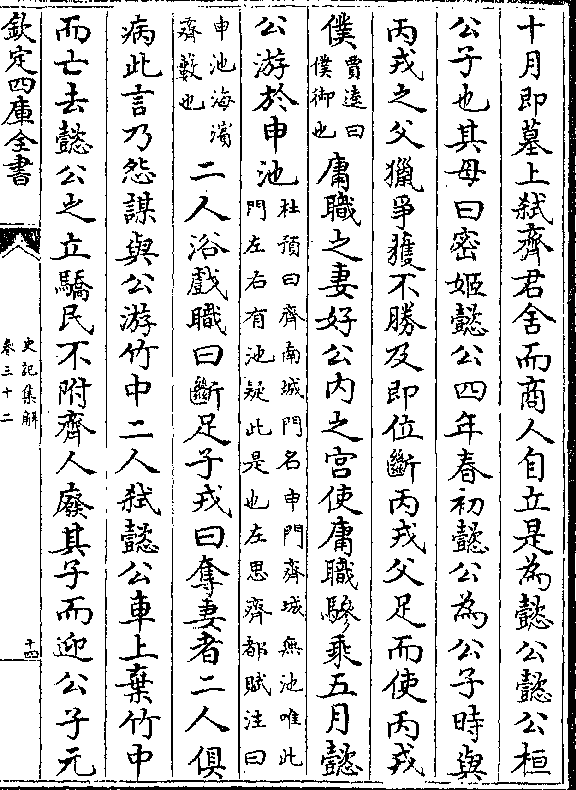 十月即墓上弑齊君舍而商人自立是為懿公懿公桓
公子也其母曰密姬懿公四年春初懿公為公子時與
丙戎之父獵爭獲不勝及即位斷丙戎父足而使丙戎
僕賈逵曰僕御也庸職之妻好公內之宮使庸職驂乘五月懿
公游於申池杜預曰齊南城門名申門齊城無池唯此門左右有池疑此是也左思齊都賦注曰
申池海濱齊藪也二人浴戲職曰斷足子戎曰奪妻者二人俱
病此言乃怨謀與公游竹中二人弑懿公車上棄竹中
而亡去懿公之立驕民不附齊人廢其子而迎公子元
欽定四庫全書
史記集解
卷三十二
十四